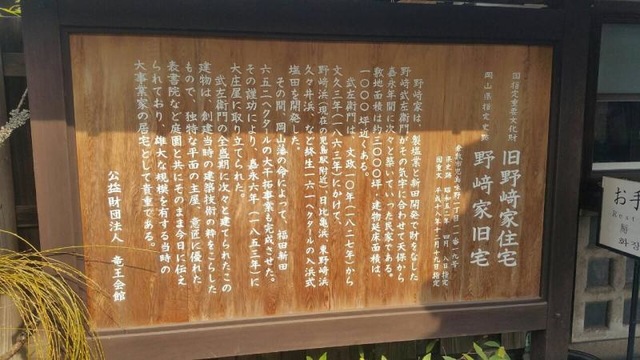 国指定重要文化財
旧野﨑家住宅
岡山県指定史跡
野﨑家旧宅
倉敷市児島味野一丁目一一番一九号
県史跡 昭和五二年四月八日指定
国重文 平成一八年十二月十九日指定
野﨑家は、製塩業と新田開発で財をなした
野﨑武左衛門がその気字に合わせて天保から
嘉永年間に次々と築いていった民家である。
敷地面積は約三〇〇〇坪、建物延床面積は、
一〇〇〇坪近くある。
武左衛門は、文政一〇年(一八二七年)から
文久三年(一八六三年)にかけて、
野﨑浜(現在の児島駅附近)日比亀浜、東野﨑浜
久々井浜、など終生一六一ヘクタールの入浜式
塩田を開発した。
その間、岡山藩の命によって、福田新田
六五二ヘクタールの大干拓事業も完成させた。
その護功により、嘉永六年(一八五三年)に
大庄屋に取り立てられた。
武左衛門の全盛期に次々と建てられたこの
建物は、創建当時の建築技術の粋をこらした
もので、独特な平面の主屋、意匠に優れた
表書院など庭園と共にそのまま今日に伝え
られており、雄大な規模を有する当時の
大事業家の居宅として貴重である。
公益財団法人 竜王会館
お手
화장